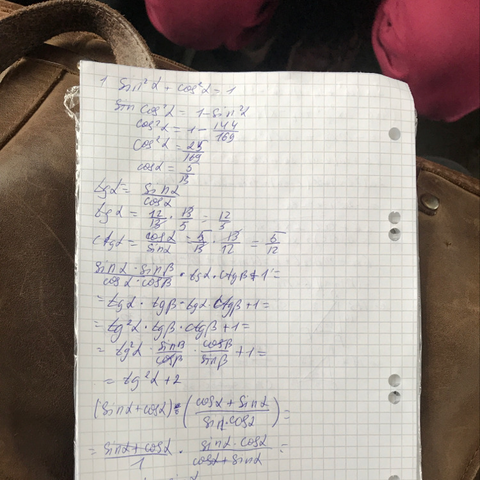 1 sin²α + cos²α = 1
sin cos²α = 1 - sin²α
cos²α = 1 - 144/169
cos²α = 25/169
cosα = 5/13
tgα = sinα/cosα
tgα = 12/13 · 13/5 = 12/5
ctgα = cosα/sinα = 5/13 · 13/12 = 5/12
sinα · sinβ / cosα · cosβ · tgα · ctgβ + 1 =
= tgα · tgβ · tgα ctgβ + 1 =
= tg²α · tgβ · ctgβ + 1 =
= tg²α · sinβ/cosβ · cosβ/sinβ + 1 =
= tg²α + 2
(sinα + cosα) : (cosα + sinα / sin · cosα) =
= sinα + cosα / 1 · sinα · cosα / cosα + sinα =